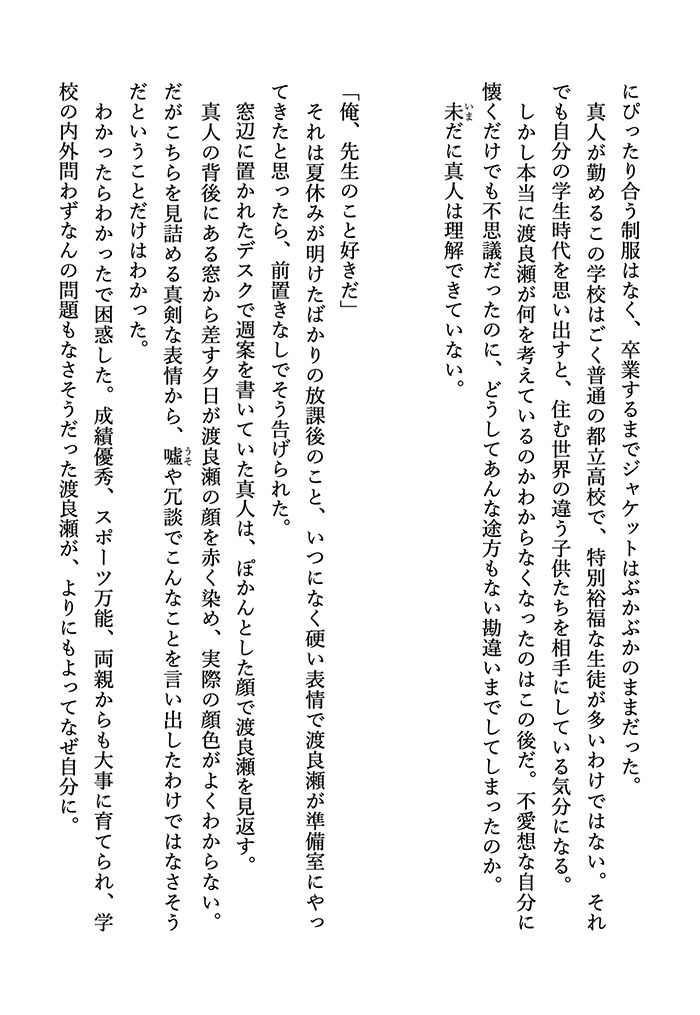 にぴったり合う制服はなく、卒業するまでジャケットはぶかぶかのままだった。
　真人が勤めるこの学校はごく普通の都立高校で、特別裕福な生徒が多いわけではない。それ
でも自分の学生時代を思い出すと、住む世界の違う子供たちを相手にしている気分になる。
　しかし本当に渡良瀬が何を考えているのかわからなくなったのはこの後だ。不愛想な自分に
懐くだけでも不思議だったのに、どうしてあんな途方もない勘違いまでしてしまったのか。
　未だに真人は理解できていない。
「俺、先生のこと好きだ」
　それは夏休みが明けたばかりの放課後のこと、いつになく硬い表情で渡良瀬が準備室にやっ
てきたと思ったら、前置きなしでそう告げられた。
　窓辺に置かれたデスクで週案を書いていた真人は、ぽかんとした顔で渡良瀬を見返す。
　真人の背後にある窓から差す夕日が渡良瀬の顔を赤く染め、実際の顔色がよくわからない。
だがこちらを見詰める真剣な表情から、嘘や冗談でこんなことを言い出したわけではなさそう
だということだけはわかった。
　わかったらわかったで困惑した。成績優秀、スポーツ万能、両親からも大事に育てられ、学
校の内外問わずなんの問題もなさそうだった渡良瀬が、よりにもよってなぜ自分に。